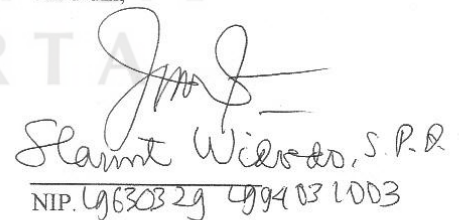 R T A
Slamt Widodo, S.P.d.
NIP. 19630329 199403 1003